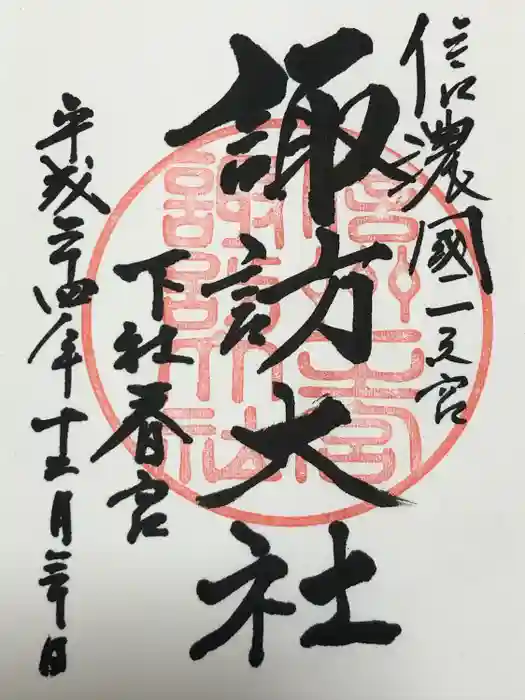 信濃國一之宮
諏訪大社
下社春宮
平成二十四年月日